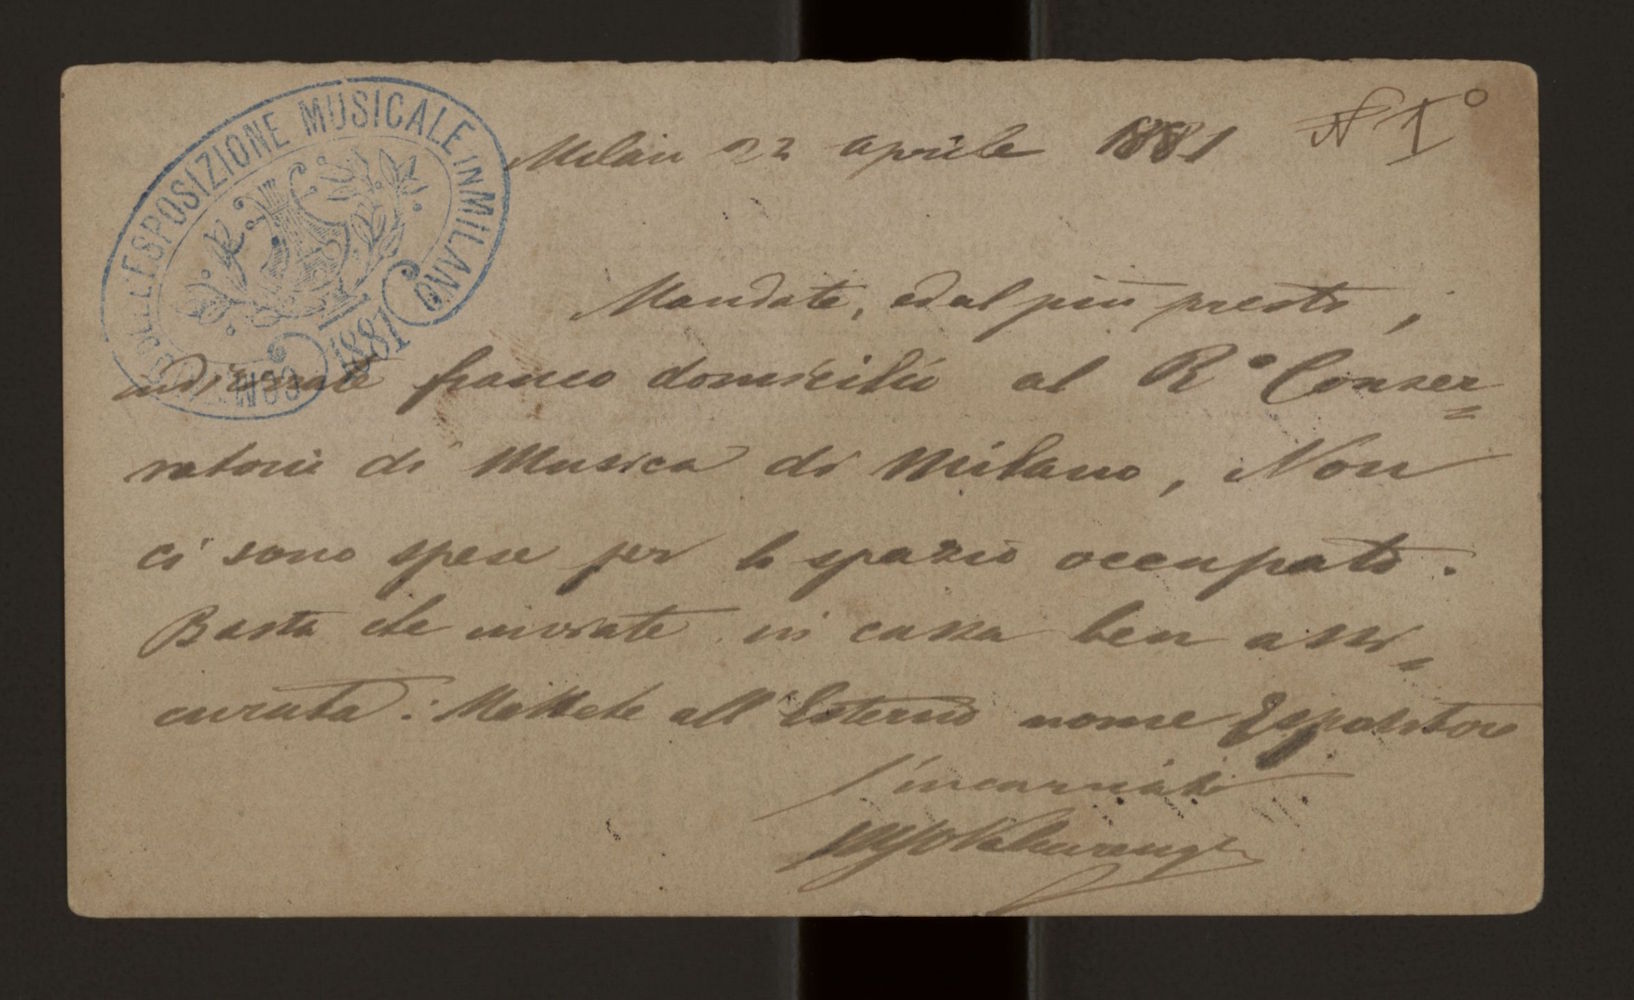 COM DELL'ESPOSIZIONE MUSICALE IN MILANO
1881
Milan 22 aprile 1881 N 1°
Mandate, ed al più presto,
indirizzate franco domicilio al R° Conser=
vatorio di Musica di Milano, Non
ci sono spese per lo spazio occupato.
Basta che inviate in cassa ben assi=
curata: Mettete all'Esterno nome Espositore
l'incaricato